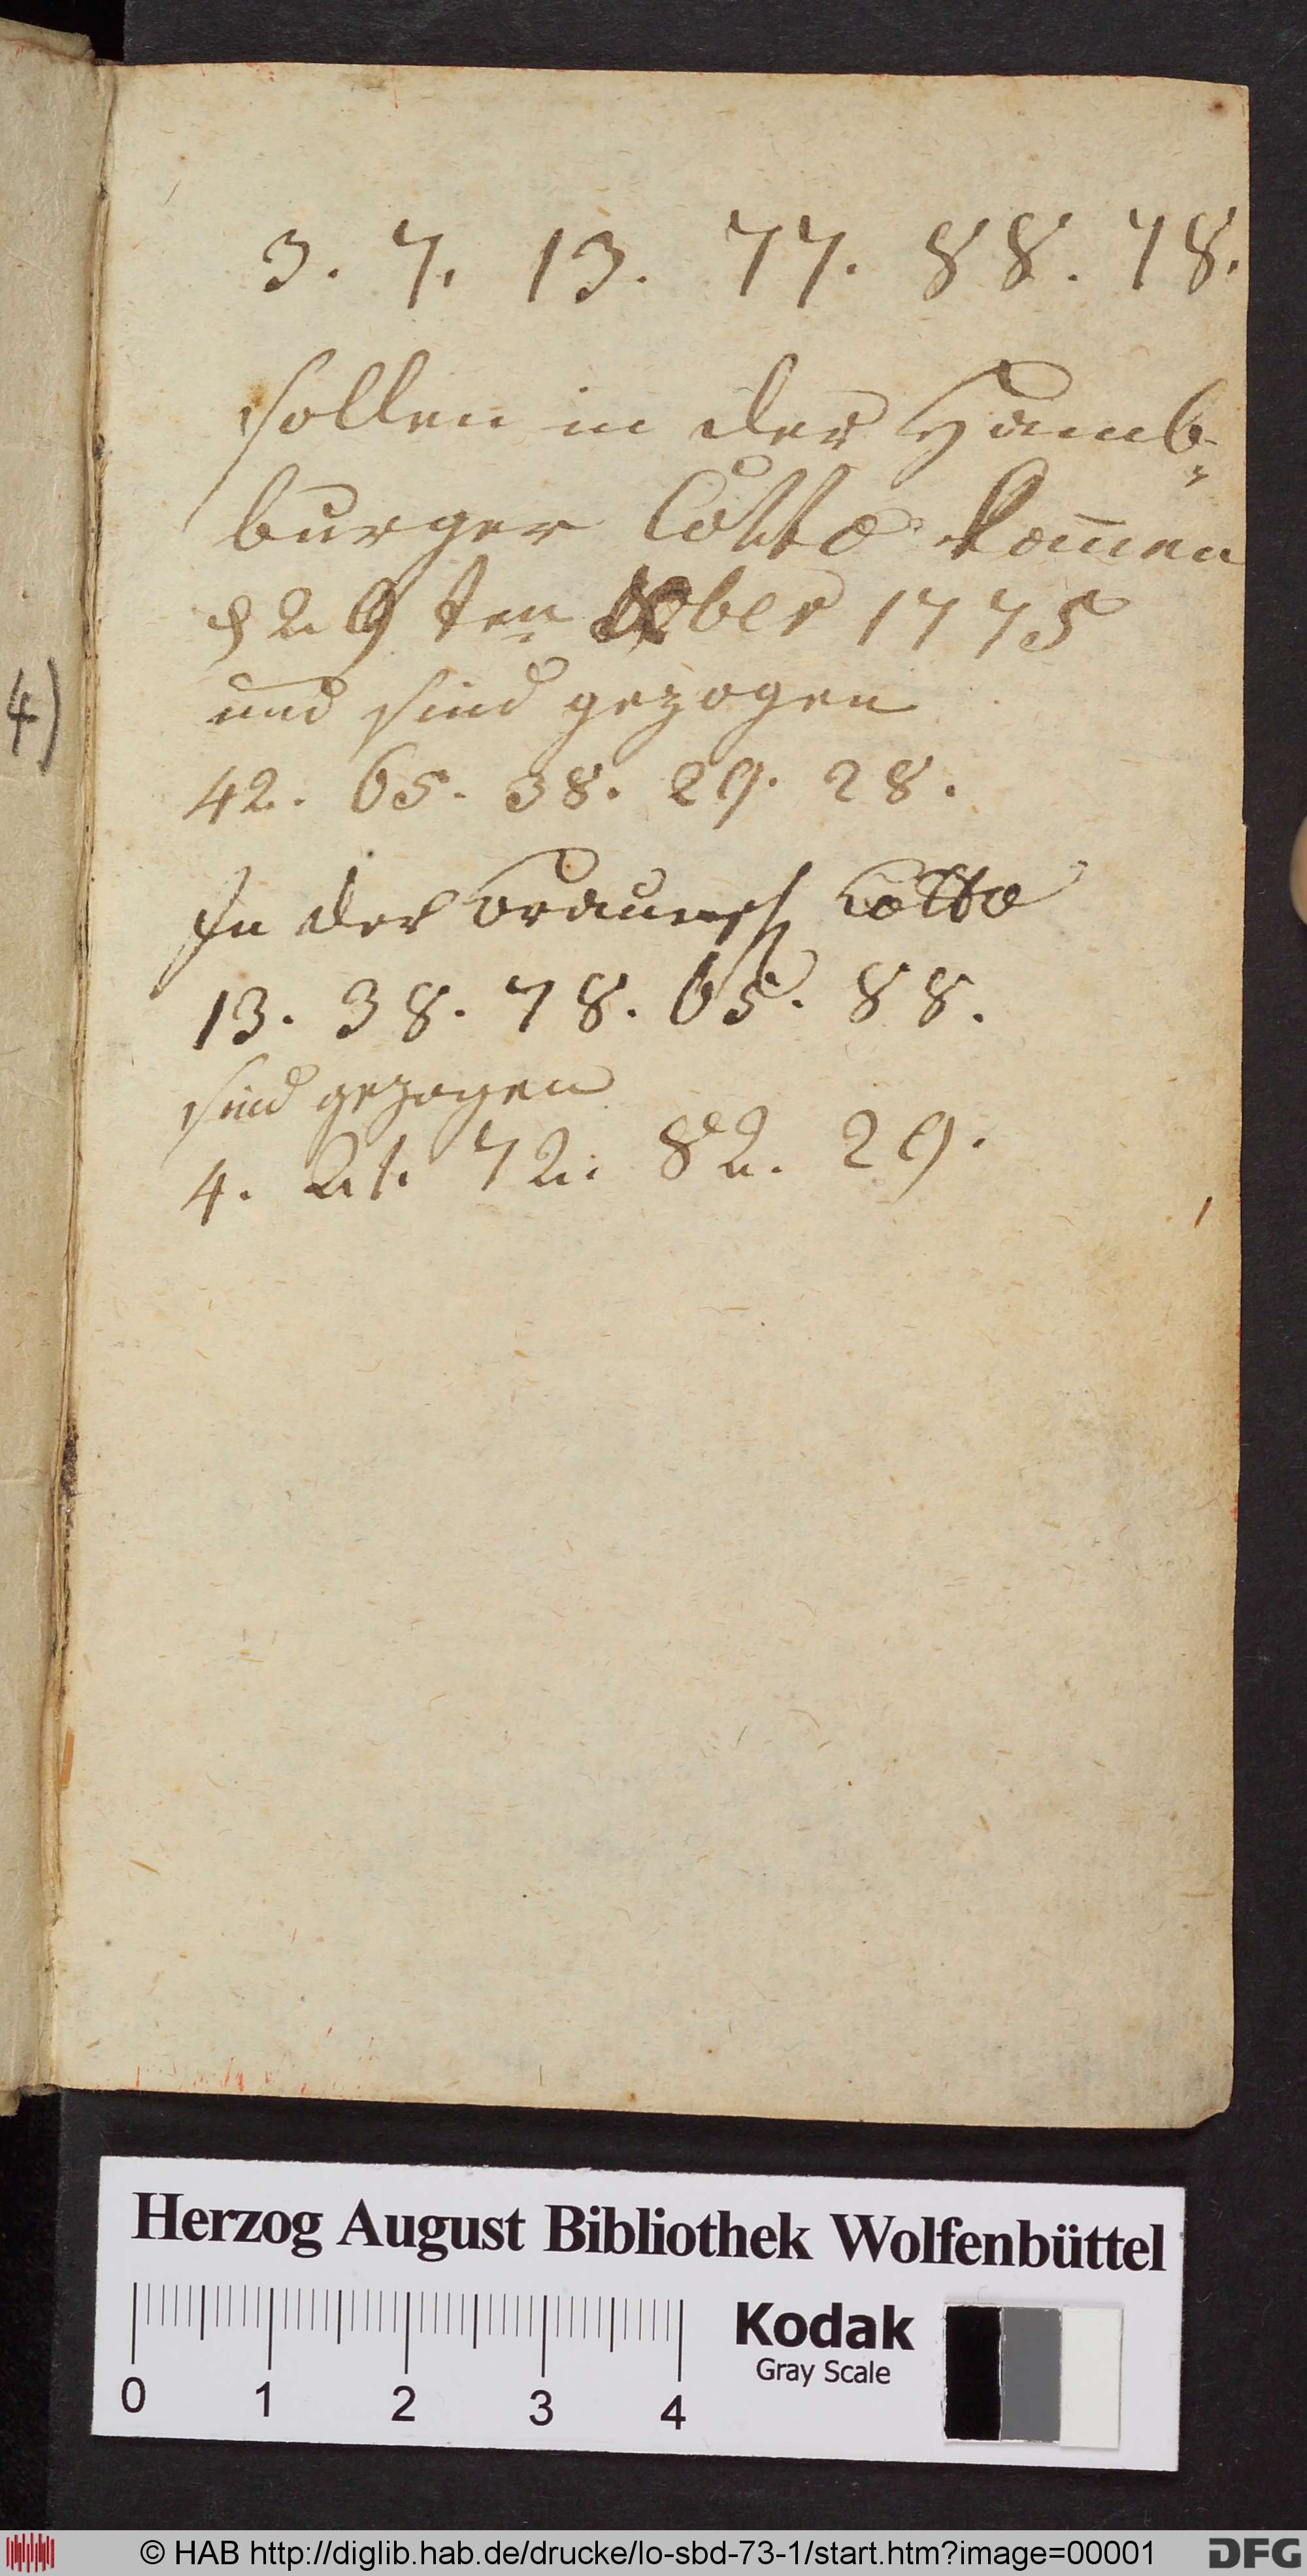 3. 7. 13. 77. 88. 78.
sollen in der Hamb-
burger Lotto kom̄en
d 29ten ber 1775
und sind gezogen
42. 65. 38. 29. 28.
4)
In der Braunsch Lotto
13. 38. 78. 65. 88.
sind gezogen
4. 21. 72. 82. 29.
Herzog August Bibliothek Wolfenbüttel
0 1 2 3 4
Kodak
Gray Scale
© HAB http://diglib.hab.de/drucke/lo-sbd-73-1/start.htm?image=00001
DFG